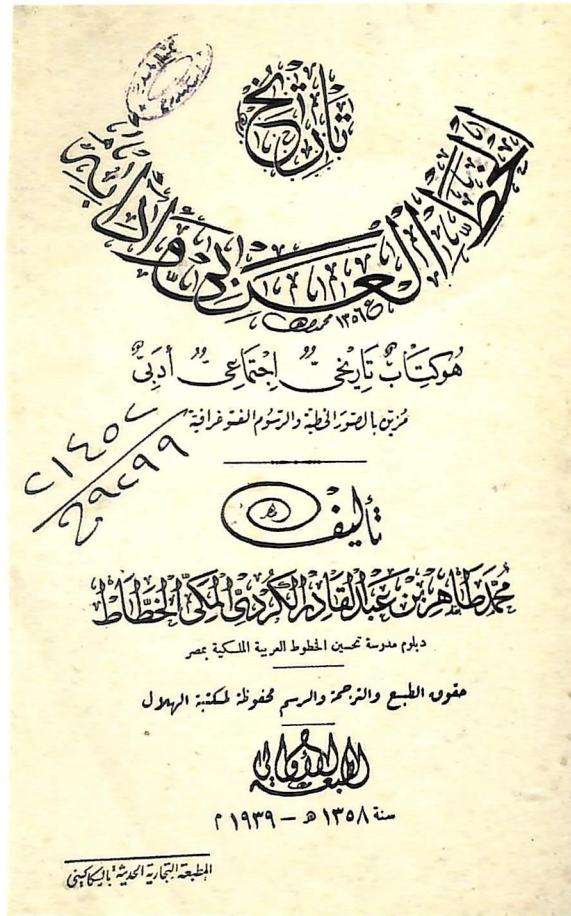 تاريخ
الخط العربي وآدابه
١٣٥٦
هُوَ كِتَابٌ تَارِيخِيٌّ إِجْتِمَاعِيٌّ أَدَبِيٌّ
مُزيّن بالصوَر الخطية والرسُوم الفتوغرافية
٢١٤٥٢
٢٩٢٩٩
تأليف
مُحَمَّد طَاهِر بْن عَبد القَادِر الكُردِي المَكِّي الخَطَّاط
دبلوم مدرسة تحسين الخطوط العربية الملكية بمصر
حقوق الطبع والترجمة والرسم محفوظة لمكتبة الهلال
الطبعة الأولى
سنة ١٣٥٨ هـ – ١٩٣٩ م
المطبعة التجارية الحديثة بالسكاكيني